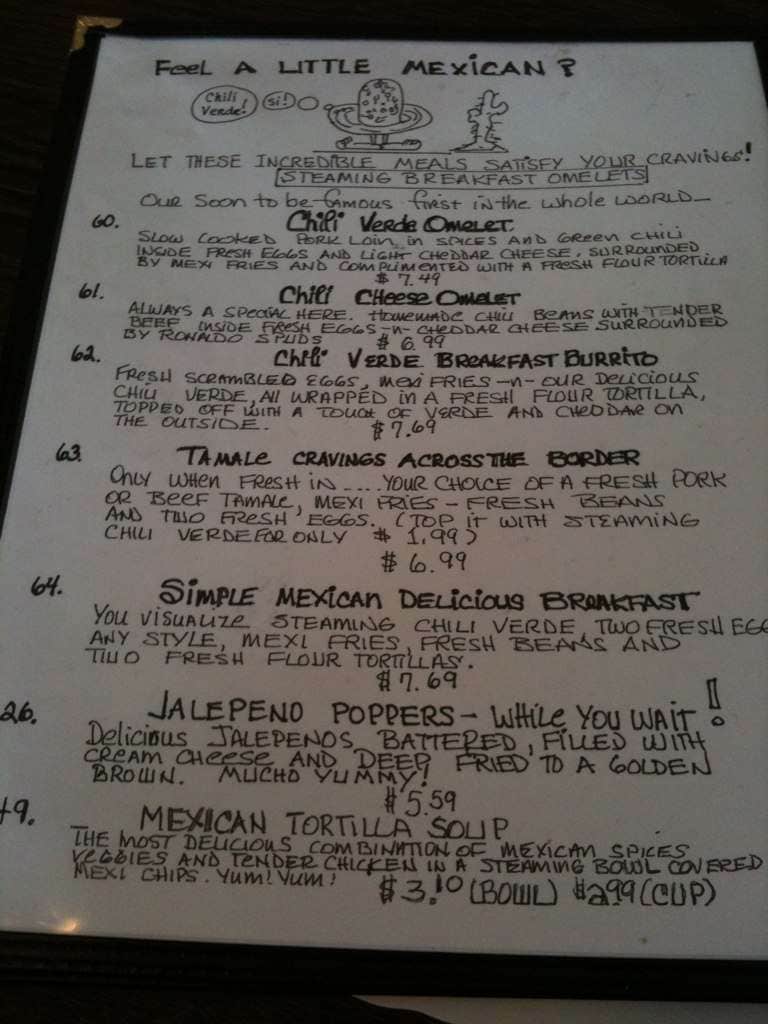 Feel A LITTLE MEXICAN?
Chili Verde! Si!
LET THESE INCREDIBLE MEALS SATISFY YOUR CRAVINGS!
STEAMING BREAKFAST OMELETS
Our Soon to be famous first in the whole WORLD—
60. Chili Verde Omelet
SLOW COOKED PORK LOIN, in SPICES AND Green CHILI
INSIDE FRESH EGGS AND LIGHT CHEDDAR CHEESE, SURROUNDED
BY MEXI FRIES AND COMPLIMENTED WITH A FRESH FLOUR TORTILLA
$7.49
61. Chili CHEESE OMELET
ALWAYS A SPECIAL HERE. Homemade CHILI BEANS WITH TENDER
BEEF INSIDE FRESH EGGS -N- CHEDDAR CHEESE SURROUNDED
BY RONALDO SPUDS $6.99
62. Chili VERDE BREAKFAST BURRITO
FRESH SCRAMBLED EGGS, MEXI FRIES -n- OUR DELICIOUS
CHILI VERDE, All WRAPPED IN A FRESH FLOUR TORTILLA,
TOPPED OFF WITH A TOUCH OF VERDE AND CHEDDAR ON
THE OUTSIDE. $7.69
63. TAMALE CRAVINGS ACROSS THE BORDER
Only WHEN FRESH IN .... YOUR CHOICE OF A FRESH PORK
OR BEEF TAMALE, MEXI FRIES - FRESH BEANS
AND TWO FRESH EGGS. (TOP IT WITH STEAMING
CHILI VERDE FOR ONLY $1.99)
$6.99
64. SIMPLE MEXICAN DELICIOUS BREAKFAST
YOU VISUALIZE STEAMING CHILI VERDE, TWO FRESH EGG
ANY STYLE, MEXI FRIES, FRESH BEANS AND
TWO FRESH FLOUR TORTILLAS.
$7.69
26. JALEPENO POPPERS - WHILE YOU WAIT!
Delicious JALEPENOS, BATTERED, FILLED WITH
CREAM CHEESE AND DEEP FRIED TO A GOLDEN
BROWN. MUCHO YUMMY!
$5.59
49. MEXICAN TORTILLA SOUP
THE MOST DELICIOUS COMBINATION OF MEXICAN SPICES
VEGGIES AND TENDER CHICKEN IN A STEAMING BOWL COVERED
MEXI CHIPS. YUM! YUM! $3.10 (BOWL) $2.99 (CUP)